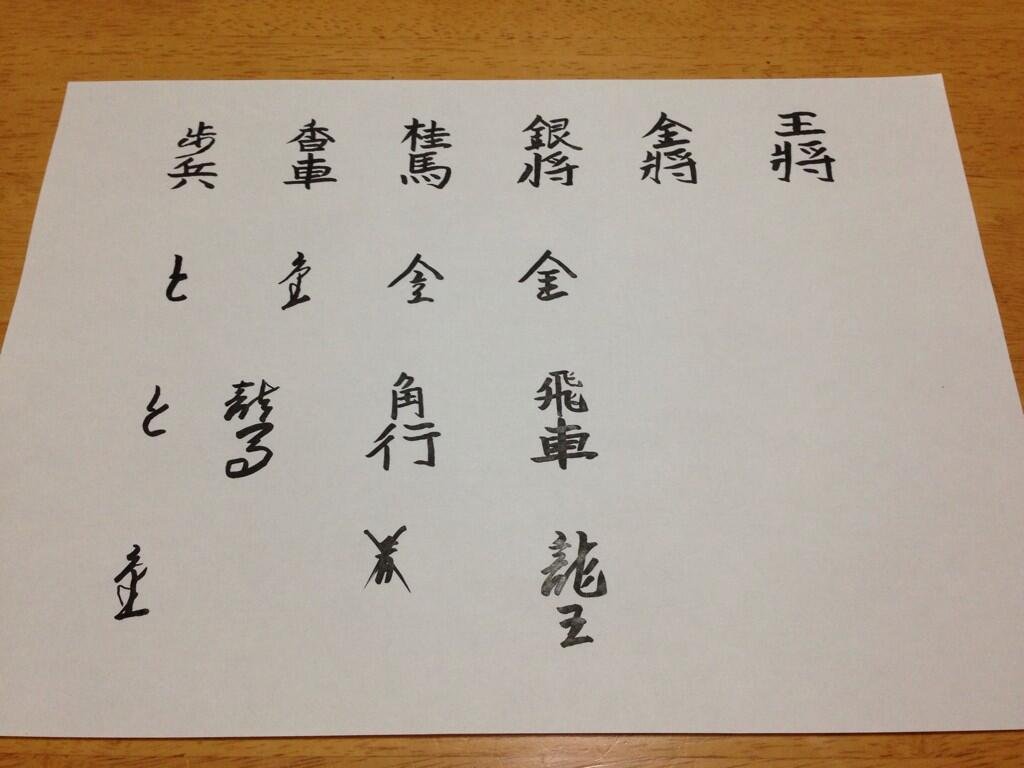 王將
金將
銀将
桂馬
香車
歩兵
金
金
と
飛車
角行
龍馬
と
龍王